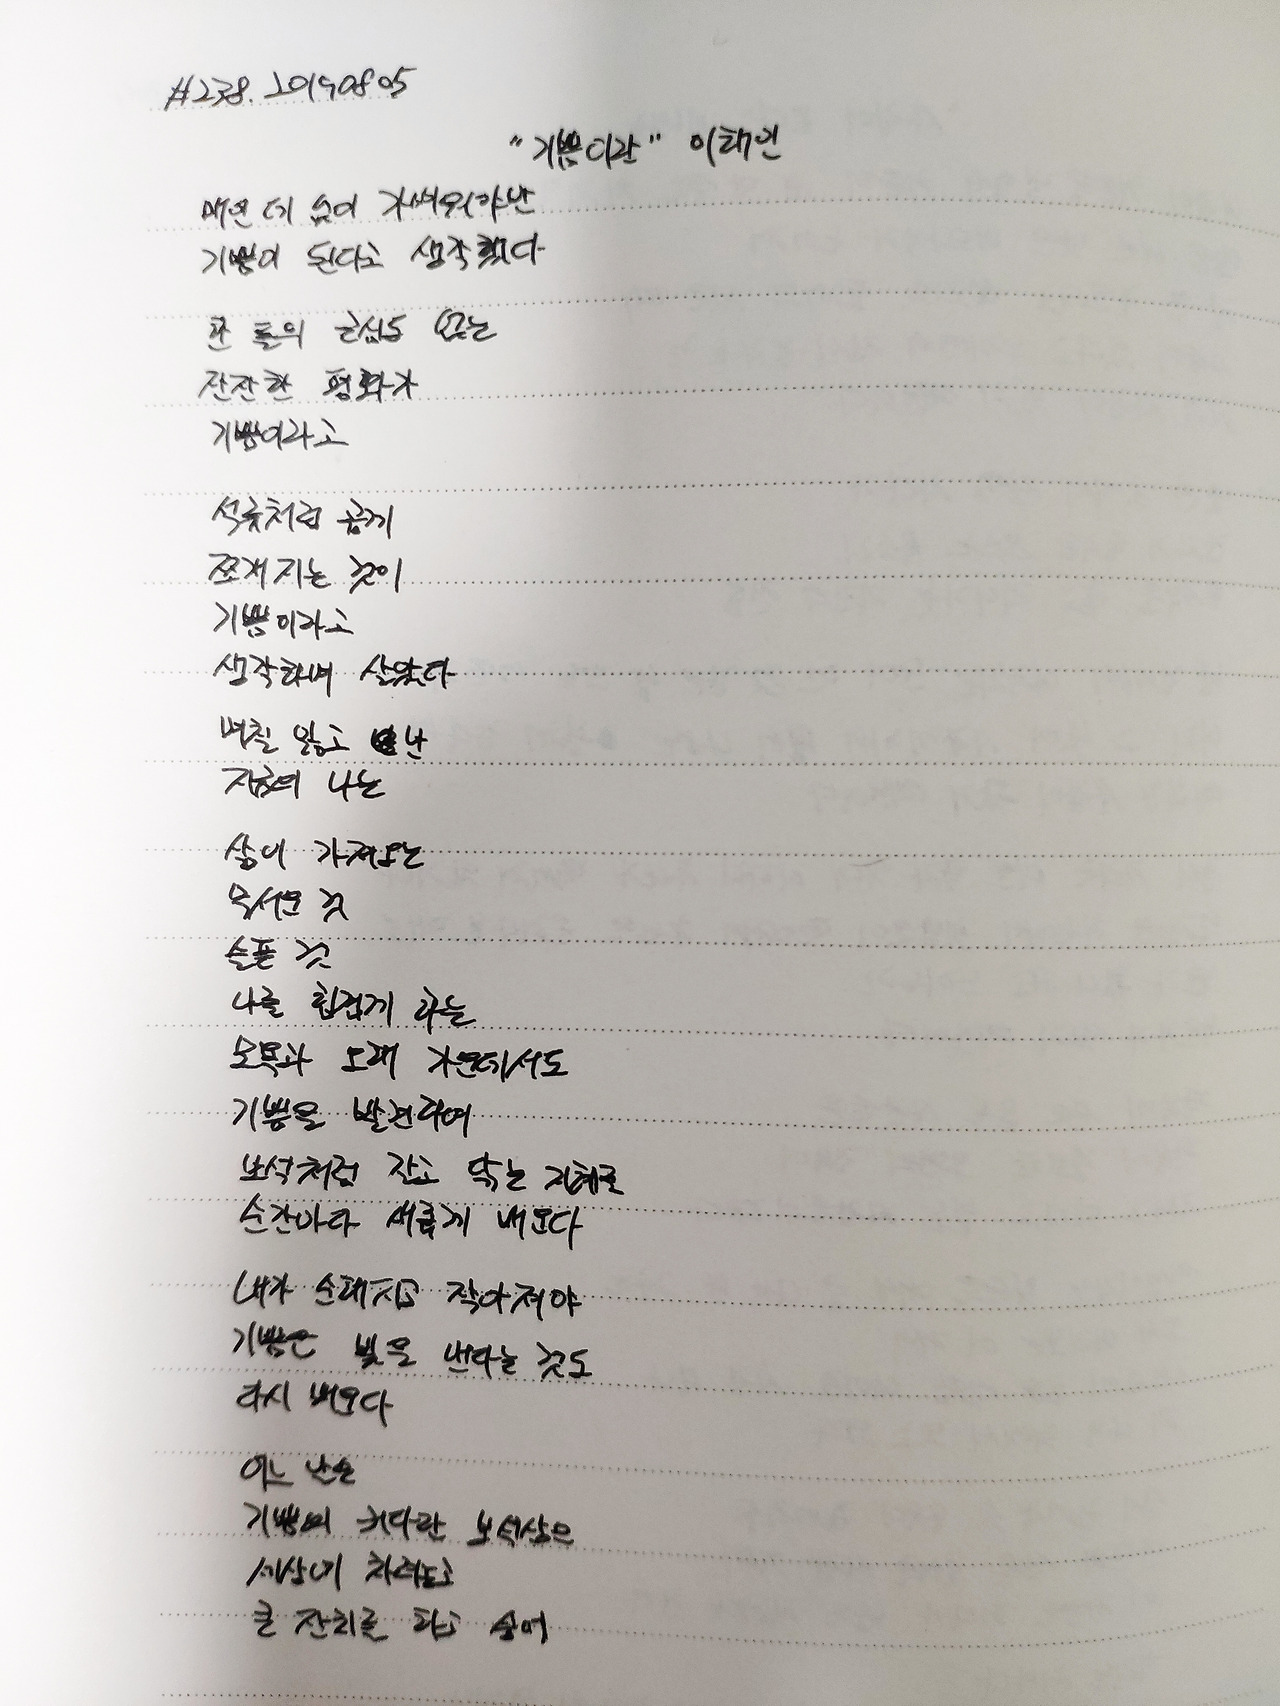 #238. 20190805
"기쁨이란" 이해인
매인 데 없이 가벼워야만
기쁨이 된다고 생각했다
한 톨의 근심도 없는
잔잔한 평화가
기쁨이라고
석류처럼 곱게
쪼개지는 것이
기쁨이라고
생각하며 살았다
며칠 앓고 난
지금의 나는
삶이 가져오는
무서운 것
슬픈 것
나를 힘겹게 하는
모욕과 오해 가운데서도
기쁨을 발견하여
보석처럼 갈고 닦는 지혜를
순간마다 새롭게 배운다
내가 순해지고 작아져야
기쁨은 빛을 낸다는 것도
다시 배운다
어느 날은
기쁨의 커다란 보석상을
세상에 차려놓고
큰 잔치를 하고 싶어